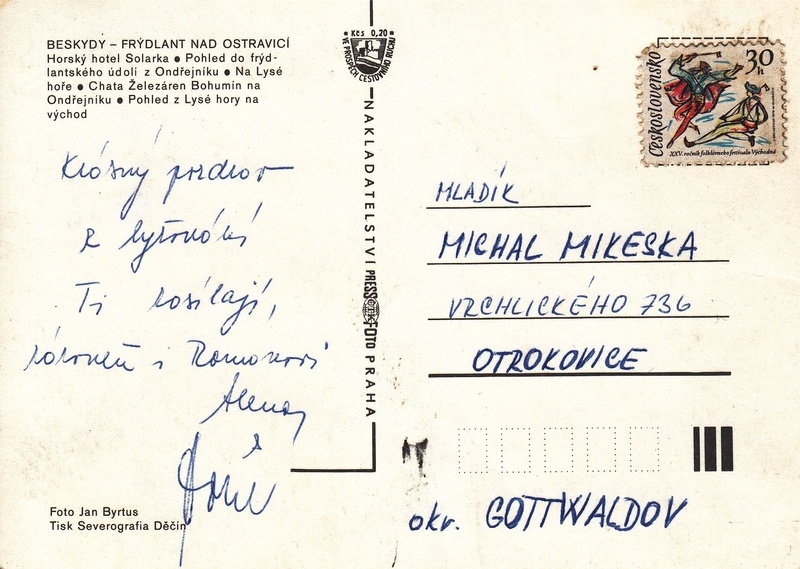 BESKYDY – FRÝDLANT NAD OSTRAVICÍ
Horský hotel Solarka ● Pohled do frýd-
lantského údolí z Ondřejníku ● Na Lysé
hoře ● Chata Železáren Bohumín na
Ondřejníku ● Pohled z Lysé hory na
východ
Krásný pozdrav
z lyžování
Ti posílají,
zároveň i Romanovi
Alena
Foto Jan Byrtus
Tisk Severografia Děčín
Kčs 0,20
VE PROSPĚCH CESTOVNÍHO RUCHU
NAKLADATELSTVÍ PRESSFOTO PRAHA
Československo
30 h
XXV. ročník folklórneho festivalu Východná
MLADÍK
MICHAL MIKESKA
VRCHLICKÉHO 736
OTROKOVICE
okr. GOTTWALDOV